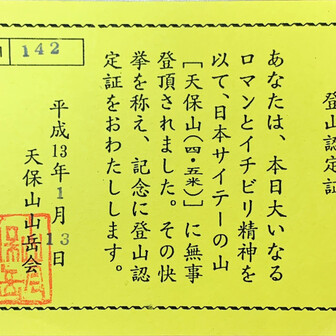 登山認定証
142
あなたは、本日大いなる
ロマンとイチビリ精神を
以て、日本サイテーの山
［天保山（四・五米）］に無事
登頂されました。その快
挙を称え、記念に登山認
定証をおわたしします。
平成13年1月13日
天保山山岳会